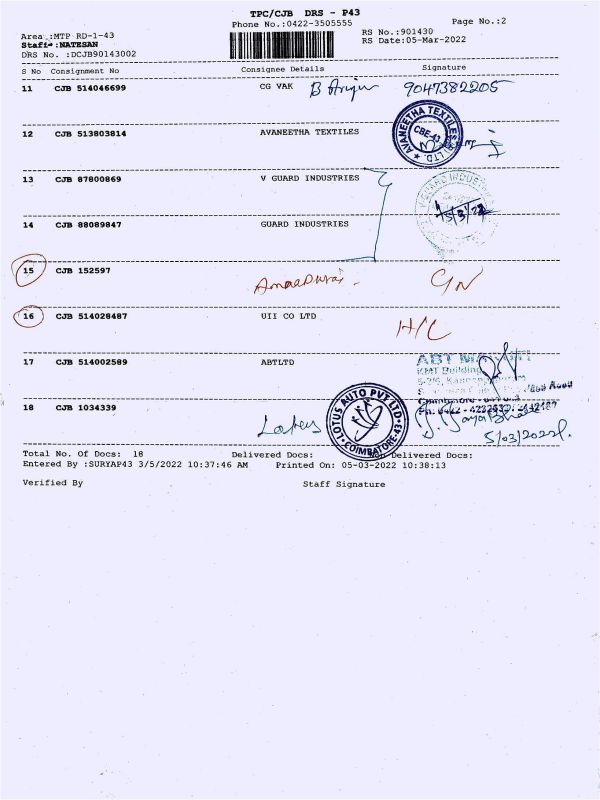 TPC/CJB DRS - P43
Phone No.:0422-3505555
Page No.:2
Area :MTP RD-1-43
RS No.:901430
Staff :NATESAN
RS Date:05-Mar-2022
DRS No. :DCJB90143002
S No Consignment No Consignee Details Signature
11 CJB 514046699 CG VAK B Arjun 9047382205
12 CJB 513803814 AVANEETHA TEXTILES
AVANEETHA TEXTILES LTD.
CBE-43
13 CJB 87800869 V GUARD INDUSTRIES
GUARD INDUS
5/3/22
14 CJB 88089847 GUARD INDUSTRIES
15 CJB 152597
16 CJB 514028487 UII CO LTD H/C
17 CJB 514002589 ABTLTD
ABT
KMT Building
Road
18 CJB 1034339
LOTUS AUTO PVT LTD
COIMBATORE-43
5/03/2022
Total No. Of Docs: 18 Delivered Docs: Non Delivered Docs:
Entered By :SURYAP43 3/5/2022 10:37:46 AM Printed On: 05-03-2022 10:38:13
Verified By Staff Signature